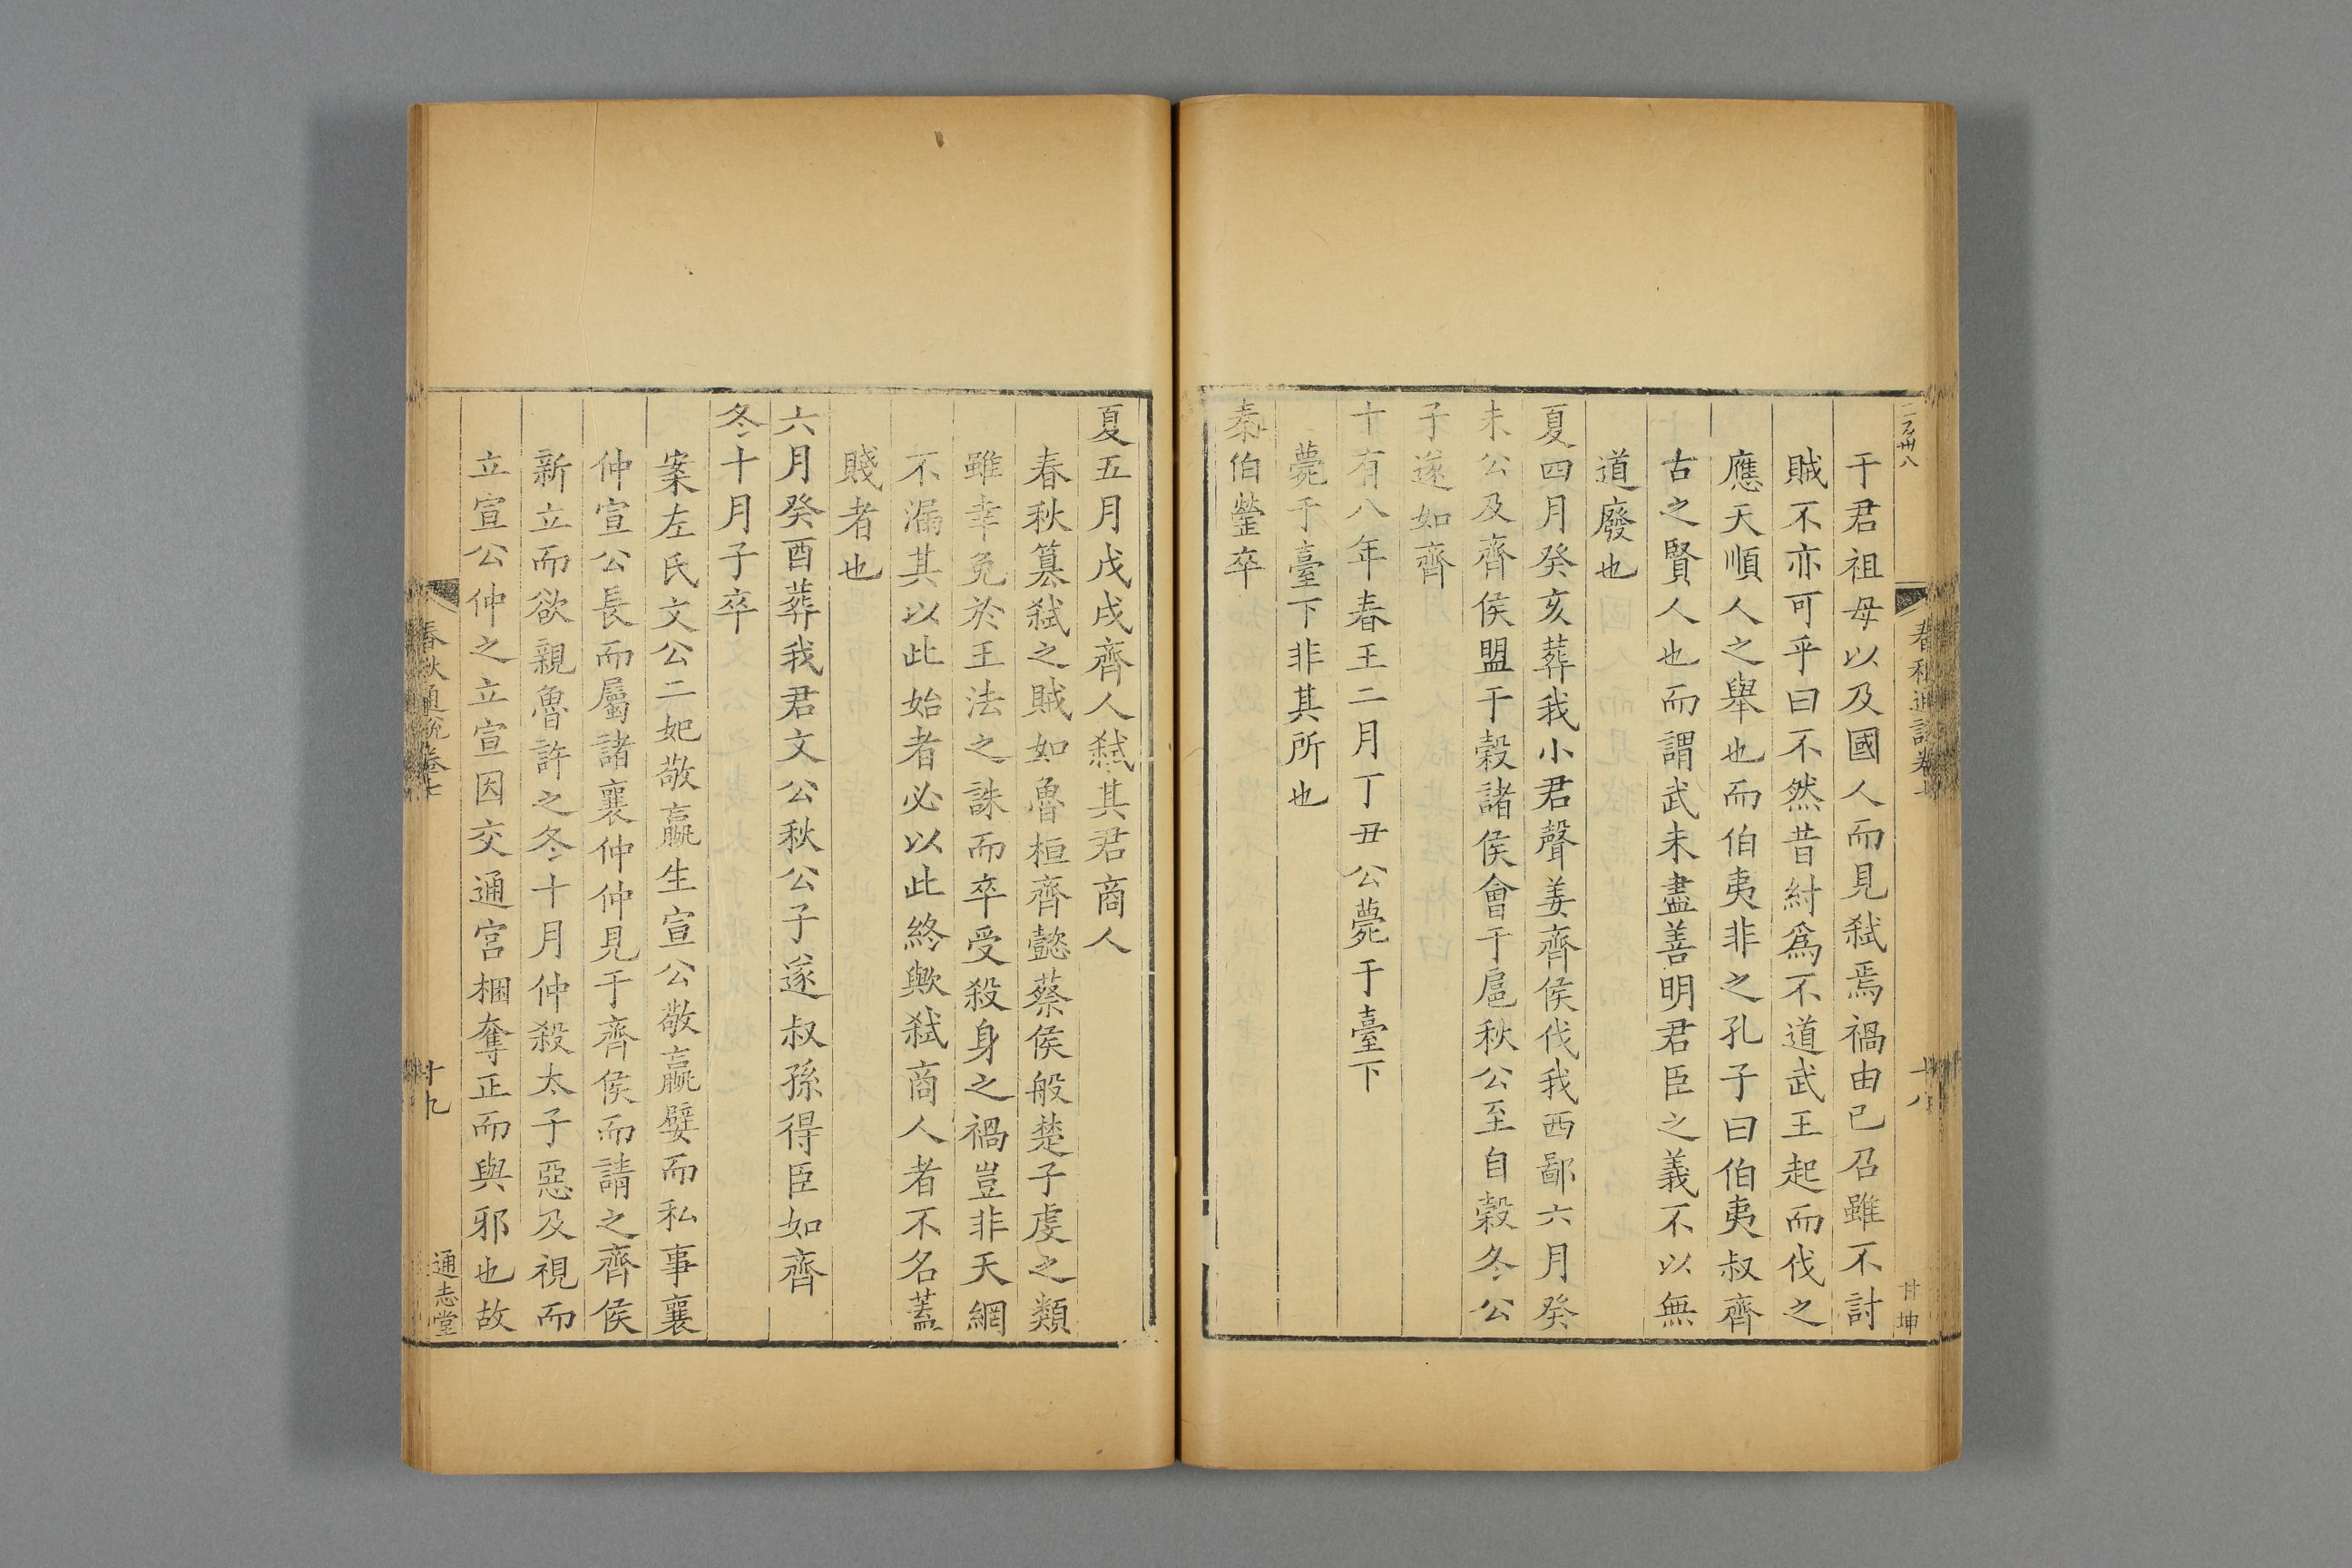 于君祖母以及國人而見弑焉禍由已召雖不討
賊不亦可乎曰不然昔紂爲不道武王起而伐之
應天順人之舉也而伯夷非之孔子曰伯夷叔齊
古之賢人也而謂武未盡善明君臣之義不以無
道廢也
夏四月癸亥葬我小君聲姜齊侯伐我西鄙六月癸
未公及齊侯盟于穀諸侯會于扈秋公至自穀冬公
子遂如齊
十有八年春王二月丁丑公薨于臺下
薨于臺下非其所也
秦伯罃卒
春秋通說卷七
十八
甘坤
夏五月戊戌齊人弑其君商人
春秋簒弑之賊如魯桓齊懿蔡侯般楚子虔之類
雖幸免於王法之誅而卒受殺身之禍豈非天網
不漏其以此始者必以此終歟弑商人者不名蓋
賤者也
六月癸酉葬我君文公秋公子遂叔孫得臣如齊
冬十月子卒
案左氏文公二妃敬嬴生宣公敬嬴嬖而私事襄
仲宣公長而屬諸襄仲仲見于齊侯而請之齊侯
新立而欲親魯許之冬十月仲殺太子惡及視而
立宣公仲之立宣因交通宮梱奪正而與邪也故
春秋通說卷七
十九
通志堂